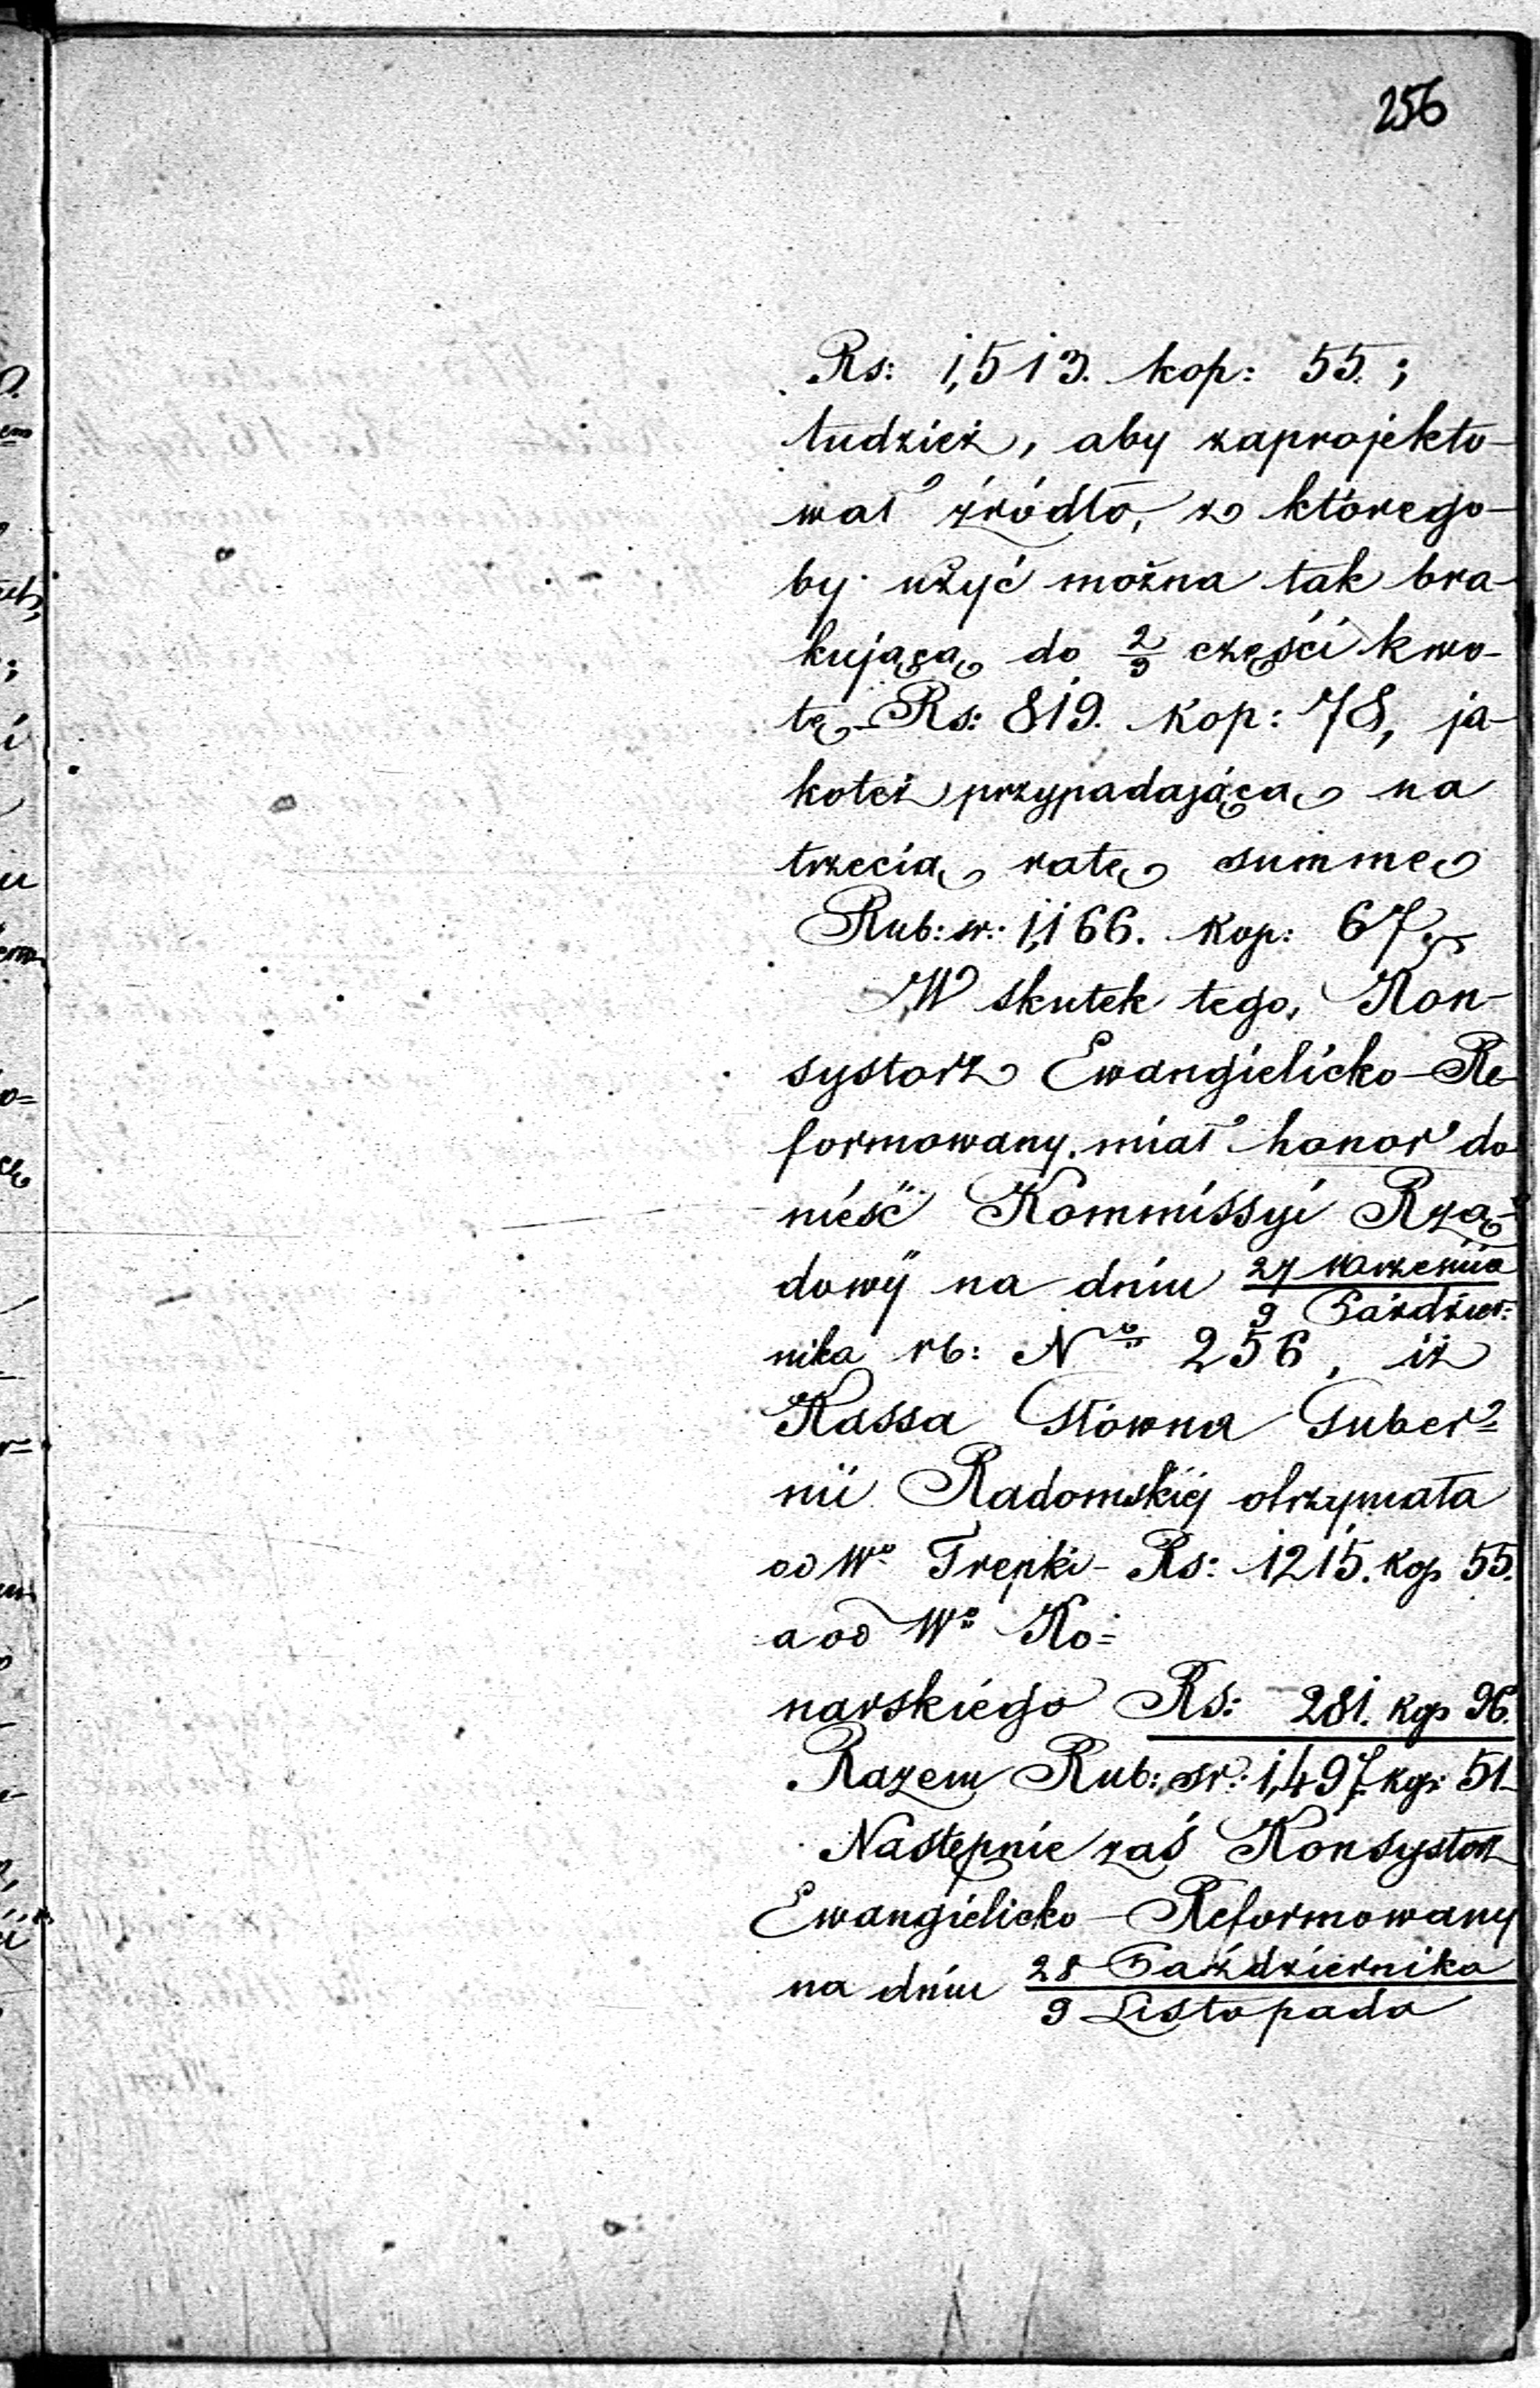 256
Rs: 1,513. kop: 55.;
tudzież, aby zaprojekto-
wał źródło, z którego-
by użyć można tak bra-
kującą do 2/3 części kwo-
tę Rs: 819. kop: 78, ja-
koteż przypadającą na
trzecią ratę summę
Rub: sr: 1,166. kop: 67
W skutek tego, Kon-
systorz Ewangielicko-Re-
formowany, miał honor do
nieść Kommissyi Rzą-
dowéj na dniu 27 Września
9 Paździer-
nika rb: No 256, iż
Kassa Główna Guber-
nii Radomskiéj otrzymała
od Wo Trepki - Rs: 1215. kop 55.
a od Wo Ko=
narskiego Rs: 281. kop 96.
Razem Rub: sr: 1,497. kop: 51
Następnie zaś Konsystorz
Ewangielicko-Reformowany
na dniu 28 Października
9 Listopada